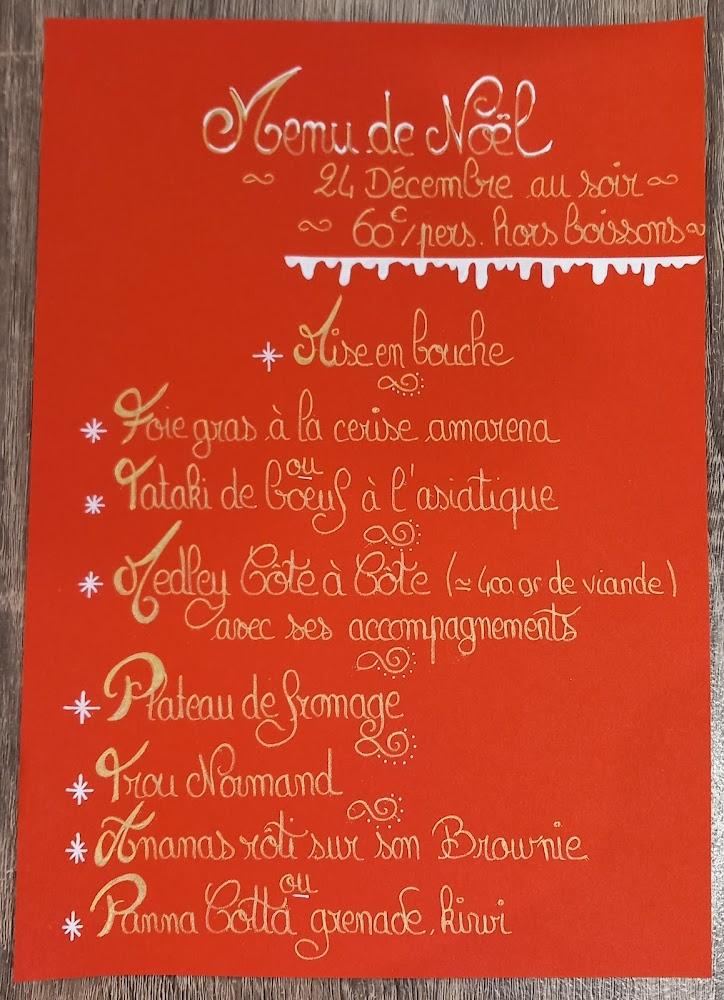 Menu de Noël
~ 24 Décembre au soir ~
~ 60€/pers. hors boissons ~
* Mise en bouche
* Foie gras à la cerise amarena
ou
* Tataki de boeuf à l'asiatique
* Medley Côte à Côte (≃ 400 gr de viande)
avec ses accompagnements
* Plateau de fromage
* Trou Normand
* Ananas rôti sur son Brownie
ou
* Panna Cotta grenade, kiwi